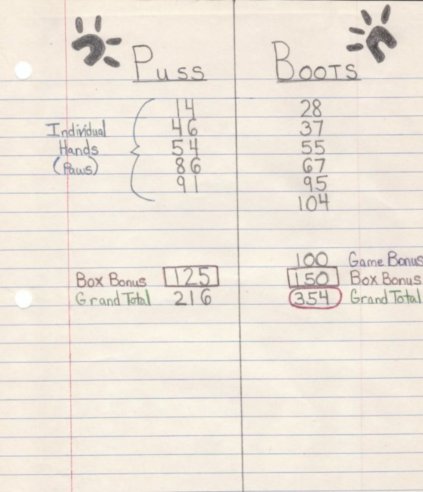 Puss Boots
14 28
Individual 46 37
Hands 54 55
(Paws) 86 67
91 95
104
100 Game Bonus
Box Bonus 125 150 Box Bonus
Grand Total 216 354 Grand Total